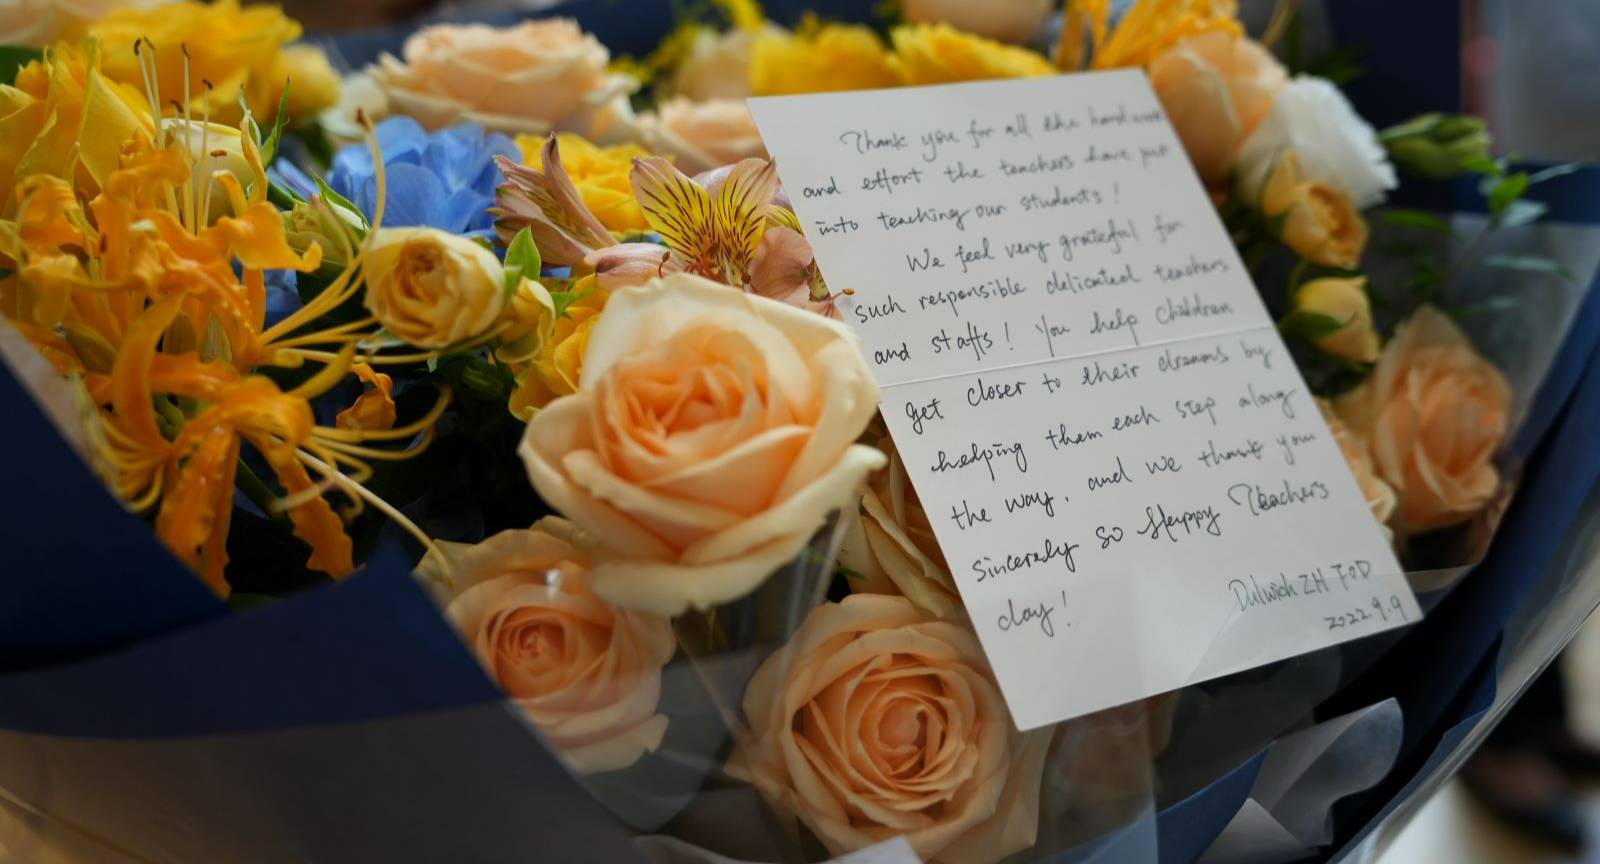 Thank you for all the hardwork
and effort the teachers have put
into teaching our students!
We feel very grateful for
such responsible delicated teachers
and staffs! You help children
get closer to their dreams by
helping them each step along
the way, and we thank you
sincerely so Happy Teachers
day!
Dulwich ZH FOD
2022.9.9